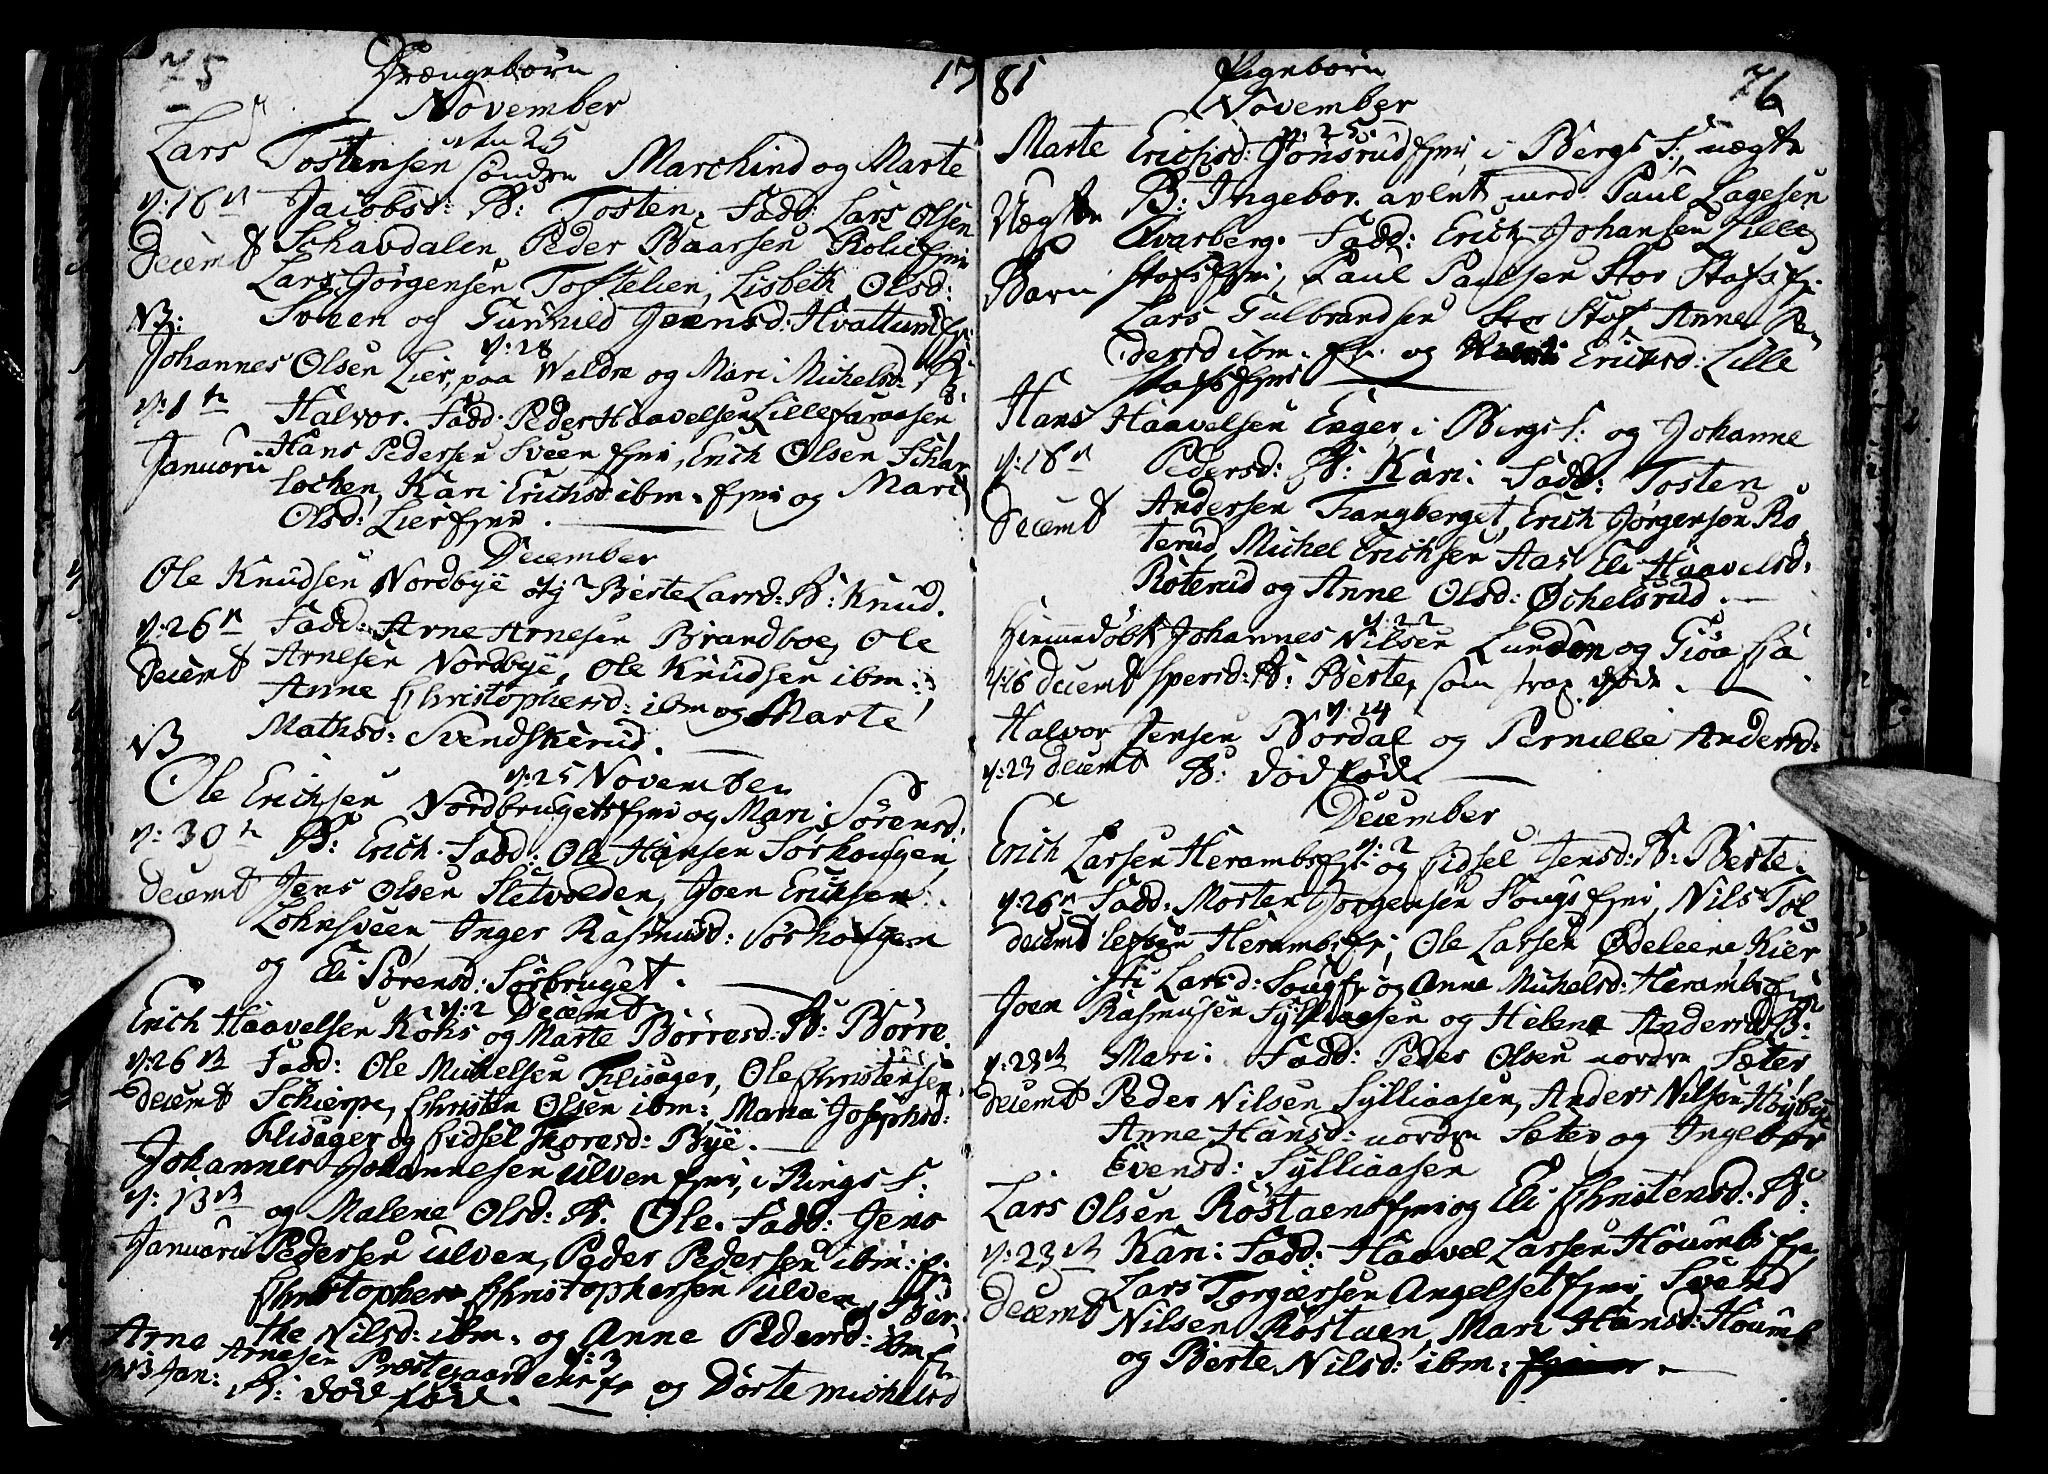 75 Drængebörn 17
November
d: 25
Lars Tostensen söndre Marchind og Marte
d: 16 Jacobsd: B: Tosten. Fadd: Lars Olsen
Decemb Schavdalen, Peder Baarsen Rolie Eyni
Lars Jörgensen Tostelien, Lisbeth Olsd:
NB: Sveen og Gunnild Joensd: Hvattum
d: 28
Johannes Olsen Lier, paa Waldre og Mari Michelsd: B:
d: 1te Halvor. Fadd: Peder Haavelsen Lille
Januarii Hans Pedersen Sveen Eyni, Erich Olsen Schar
lochen, Kari Erichsd ibm: Eyni og Mari
Olsd: Lier Eyni.
December
Ole Knudsen Nordbye og Berte Larsd: B: Knud.
d: 26 Fadd: Arne Arnesen Brandboe, Ole
Decemb Arnesen Nordbye, Ole Knudsen ibm:
Anne Christophersd: ibm og Marte
NB Mathsd: Svendskerud.
d: 25 November
Ole Erichsen Nordbruget Eyni og Mari Sörensd:
d: 30 B: Erich. Fadd: Ole Hansen Sörhougen
Decemb Jens Olsen Sletvolden, Joen Erichsen
Lohnsveen, Inger Rasmusd: Sörhougen
og Eli Sörensd: Sörbruget.
d: 2 Decemb
Erich Haavelsen Kohs og Marte Börresd: B: Börre.
d: 26 Fadd: Ole Michelsen Flisager, Ole Christensen
Decemb Schierpe, Christen Olsen ibm: Maria Josephsd:
Flisager og Sidsel Thoresd: Bye.
Johannes Johannesen Ulven Eyni, i Rings S:
d: 13 og Malene Olsd: B. Ole. Fadd: Jens
Januarii Pedersen Ulven, Peder Pedersen ibm:
Christopher Christophersen Ulven, Ber,
the Nilsd: ibm. og Anne Pedersd: ibm
d: 3
Arne Arnesen Præstegaard og Dorte Michelsd
Jan: B: död föd.
81 Pigebörn 76
November
d: 25
Marte Erichsd: Gonsrud Eyni i Bergs S:, uægte
Uægte B: Ingebor. avlet med Paul Lagesen
Qvarberg. Fadd: Erich Johansen Lille
Barn Stafs Eyni, Paul Paulsen Stor Stafs
Lars Gulbrandsen Stor Stafs Anne Pe
dersd ibm. og Erichsd: Lille
Stafs Eyni
Hans Haavelsen Enger i Bergs S: og Johanne
d: 18 Pedersd: B: Kari. Fadd: Tosten
Decemb Andersen Frangberget, Erich Jörgensen Ro
terud, Michel Erichsen Aas, Eli Haavelsd:
Roterud og Anne Olsd: Öchelsrud.
d: 22
Hiemmedöbt Johannes Nilsen Lunden og Giöa Ja
d: 16 Decemb spersd: B: Berte, som strax döde.
d: 14
Halvor Jensen Nordal og Pernille Andersd:
d: 23 Decemb B: död föd.
December
d: 2
Erich Larsen Herambs og Sidsel Jensd: B: Berte.
d: 26 Fadd: Morten Jörgensen Fougs Eyni, Nils Tol
Decemb lefsen Herambs, Ole Larsen Ödeleene, Kier
sti Larsd: Foug og Anne Michelsd: Herambs
Joen Rasmusen Sylliaasen og Helene Andersd: B:
d: 28 Mari. Fadd: Peder Olsen nordre Sæter,
Decemb Peder Nilsen Sylliaasen, Anders Nilsen Höybye
Anne Hansd: nordre Sæter og Ingebor
Evensd: Sylliaasen
Lars Olsen Röstaens Eyni og Eli Christensd: B:
d: 23 Kari: Fadd: Haavel Larsen Houmbs
Decemb Lars Torgiersen Angelset Eyni, Svend
Nilsen Röstaen, Mari Hansd: Houmb
og Berte Nilsd: ibm: